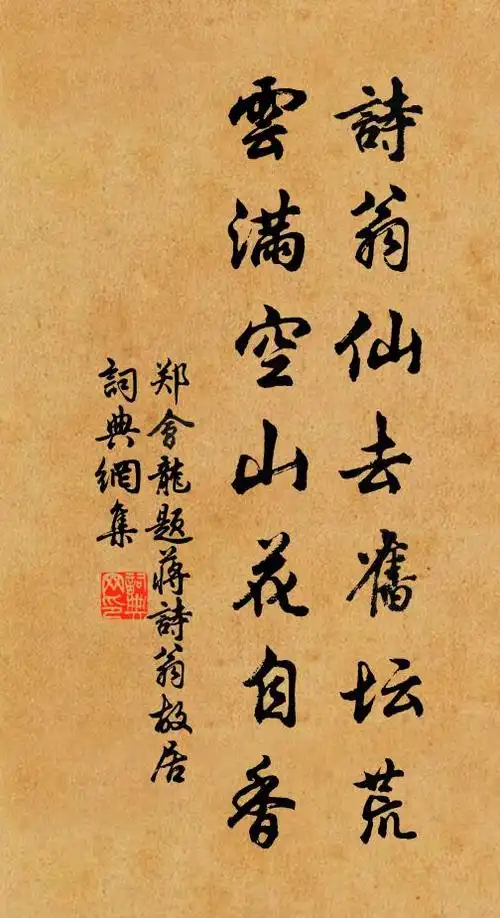 詩翁仙去舊坛荒
雲満空山花自香
郑會龍题蔣詩翁故居
詞典網集
詞典网印